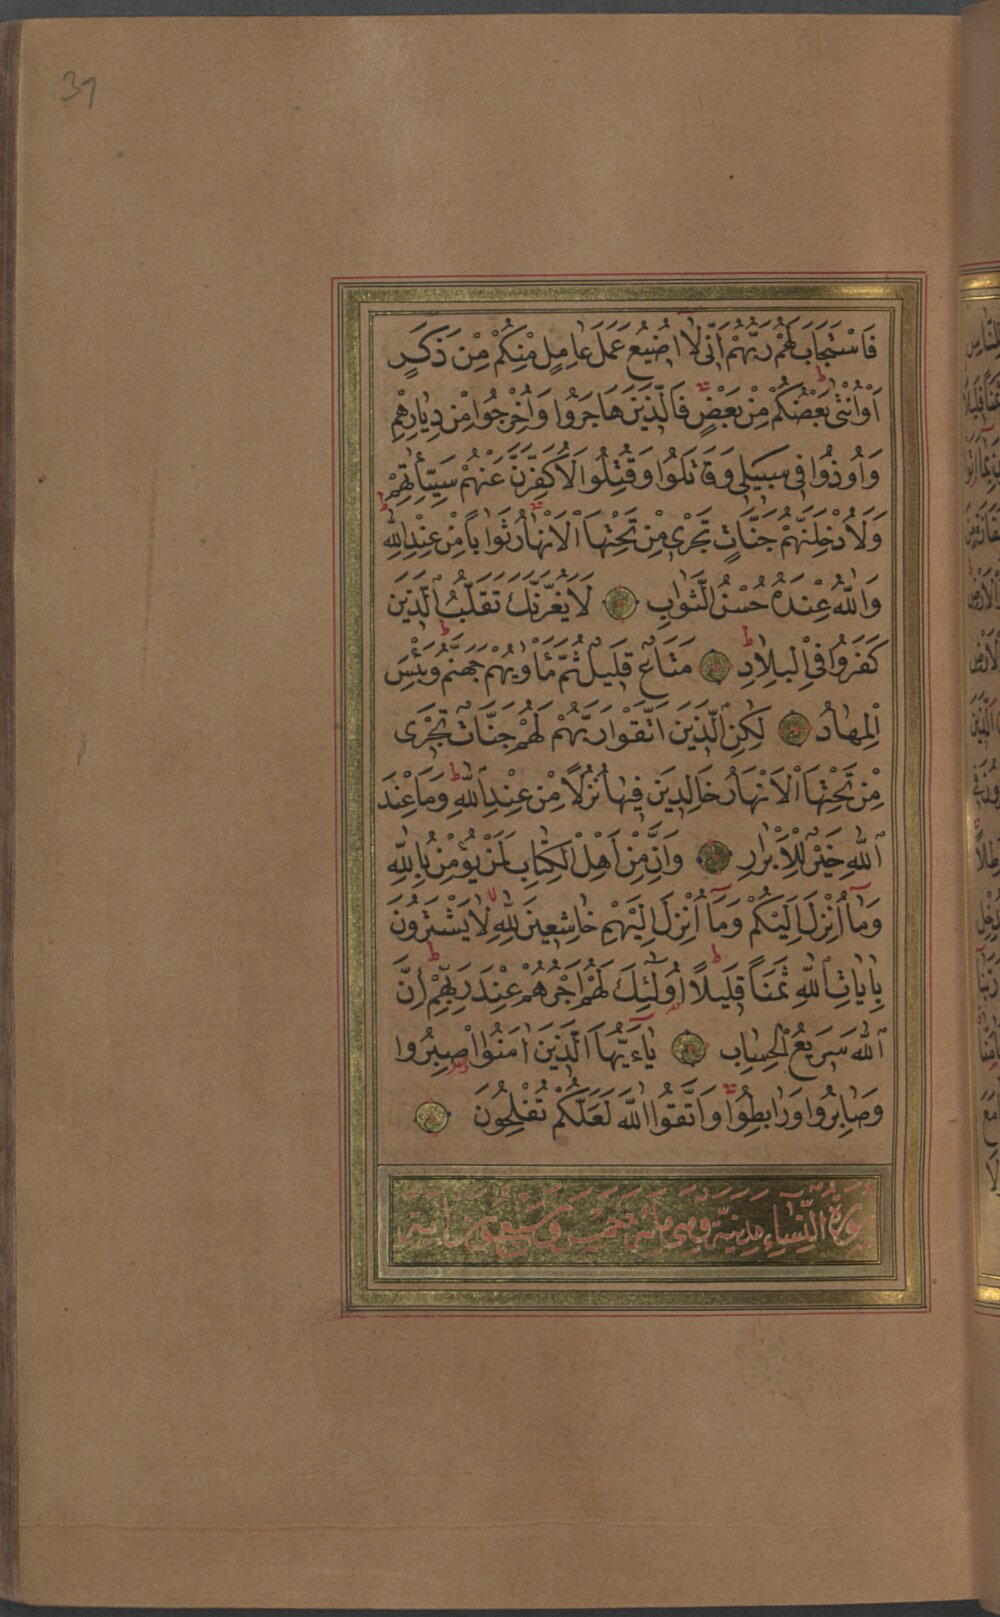 37
فَاسْتَجَابَ لَهُمْ رَبُّهُمْ اَنّٖى لَٓا اُضٖيعُ عَمَلَ عَامِلٍ مِنْكُمْ مِنْ ذَكَرٍ
اَوْ اُنْثٰى بَعْضُكُمْ مِنْ بَعْضٍ فَالَّذٖينَ هَاجَرُوا وَاُخْرِجُوا مِنْ دِيَارِهِمْ
وَاُوذُوا فٖى سَبٖيلٖى وَقَاتَلُوا وَقُتِلُوا لَاُكَفِّرَنَّ عَنْهُمْ سَيِّـَٔاتِهِمْ
وَلَاُدْخِلَنَّهُمْ جَنَّاتٍ تَجْرٖى مِنْ تَحْتِهَا الْاَنْهَارُ ثَوَابًا مِنْ عِنْدِ اللّٰهِ
وَاللّٰهُ عِنْدَهُ حُسْنُ الثَّوَابِ لَا يَغُرَّنَّكَ تَقَلُّبُ الَّذٖينَ
كَفَرُوا فِى الْبِلَادِ مَتَاعٌ قَلٖيلٌ ثُمَّ مَأْوٰيهُمْ جَهَنَّمُ وَبِئْسَ
الْمِهَادُ لٰكِنِ الَّذٖينَ اتَّقَوْا رَبَّهُمْ لَهُمْ جَنَّاتٌ تَجْرٖى
مِنْ تَحْتِهَا الْاَنْهَارُ خَالِدٖينَ فٖيهَا نُزُلًا مِنْ عِنْدِ اللّٰهِ وَمَا عِنْدَ
اللّٰهِ خَيْرٌ لِلْاَبْرَارِ وَاِنَّ مِنْ اَهْلِ الْكِتَابِ لَمَنْ يُؤْمِنُ بِاللّٰهِ
وَمَٓا اُنْزِلَ اِلَيْكُمْ وَمَٓا اُنْزِلَ اِلَيْهِمْ خَاشِعٖينَ لِلّٰهِ لَا يَشْتَرُونَ
بِاٰيَاتِ اللّٰهِ ثَمَنًا قَلٖيلًا اُولٰٓئِكَ لَهُمْ اَجْرُهُمْ عِنْدَ رَبِّهِمْ اِنَّ
اللّٰهَ سَرٖيعُ الْحِسَابِ يَٓا اَيُّهَا الَّذٖينَ اٰمَنُوا اصْبِرُوا
وَصَابِرُوا وَرَابِطُوا وَاتَّقُوا اللّٰهَ لَعَلَّكُمْ تُفْلِحُونَ
سُورَةُ النِّسَاءِ مَدَنِيَّةٌ وَهِىَ مِائَةٌ